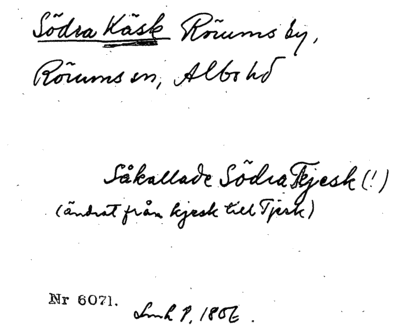 Södra Käsk Rörums by,
Rörums sn, Albo hd
Såkallade Södra Tjesk (!)
(ändrat från kjesk till Tjesk)
Nr 6071.
P. 1806.